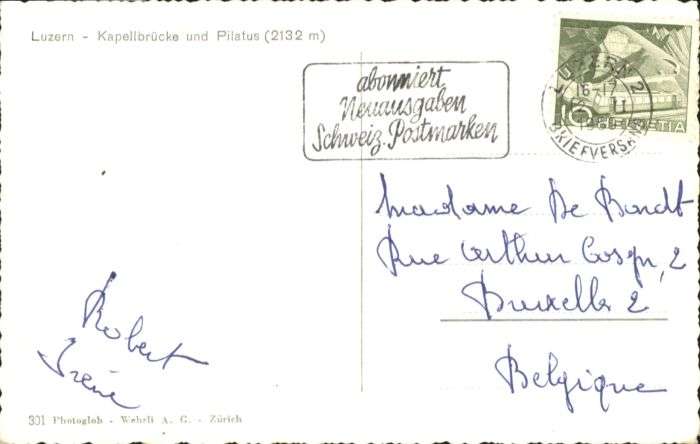 Luzern - Kapellbrücke und Pilatus (2132 m)
abonniert
Neuausgaben
Schweiz. Postmarken
LUZERN 2
16-17
II
BRIEFVERSAND
10 HELVETIA
Madame De Bondt
Rue Arthur Cosyn, 2
Bruxelles 2
Belgique
Robert
Irène
301 Photoglob - Wehrli A. G. - Zürich